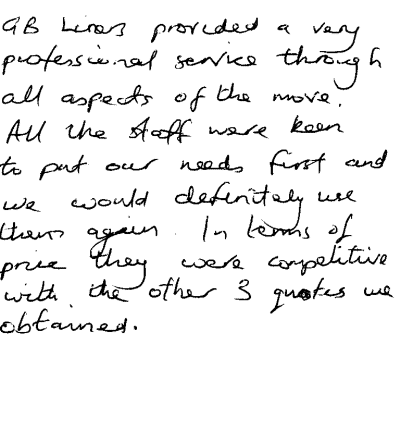 GB Liners provided a very
professional service through
all aspects of the move.
All the staff were keen
to put our needs first and
we would definitely use
them again. In terms of
price they were competitive
with the other 3 quotes we
obtained.